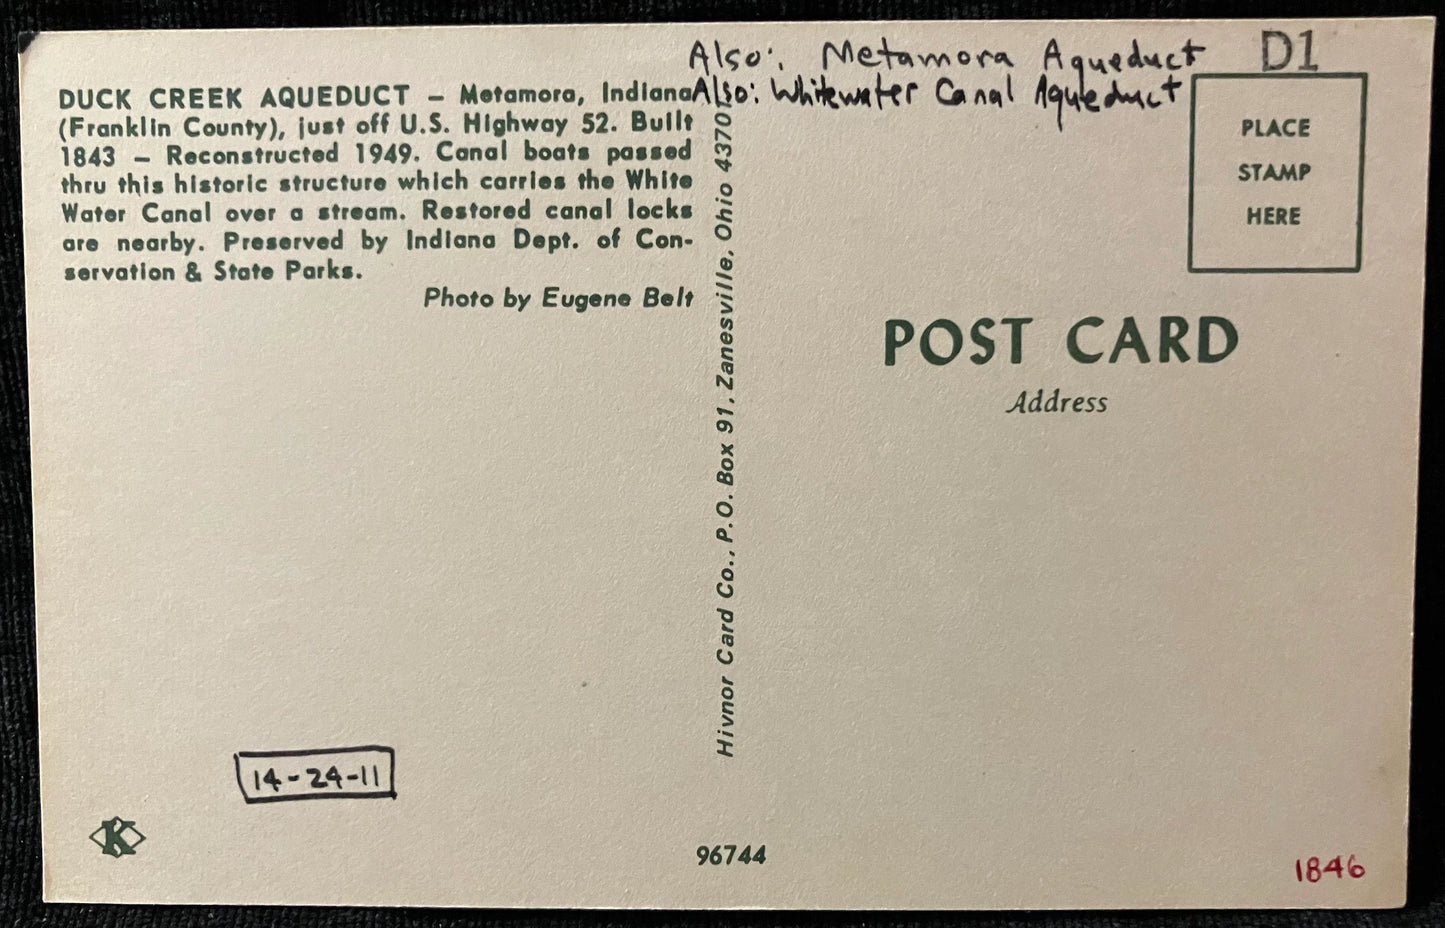 Also: Metamora Aqueduct
D1
Also: Whitewater Canal Aqueduct
DUCK CREEK AQUEDUCT – Metamora, Indiana
(Franklin County), just off U.S. Highway 52. Built
1843 – Reconstructed 1949. Canal boats passed
thru this historic structure which carries the White
Water Canal over a stream. Restored canal locks
are nearby. Preserved by Indiana Dept. of Con-
servation & State Parks.
Photo by Eugene Belt
Hivnor Card Co., P.O. Box 91, Zanesville, Ohio
PLACE
STAMP
HERE
POST CARD
Address
14-24-11
K
96744
1846